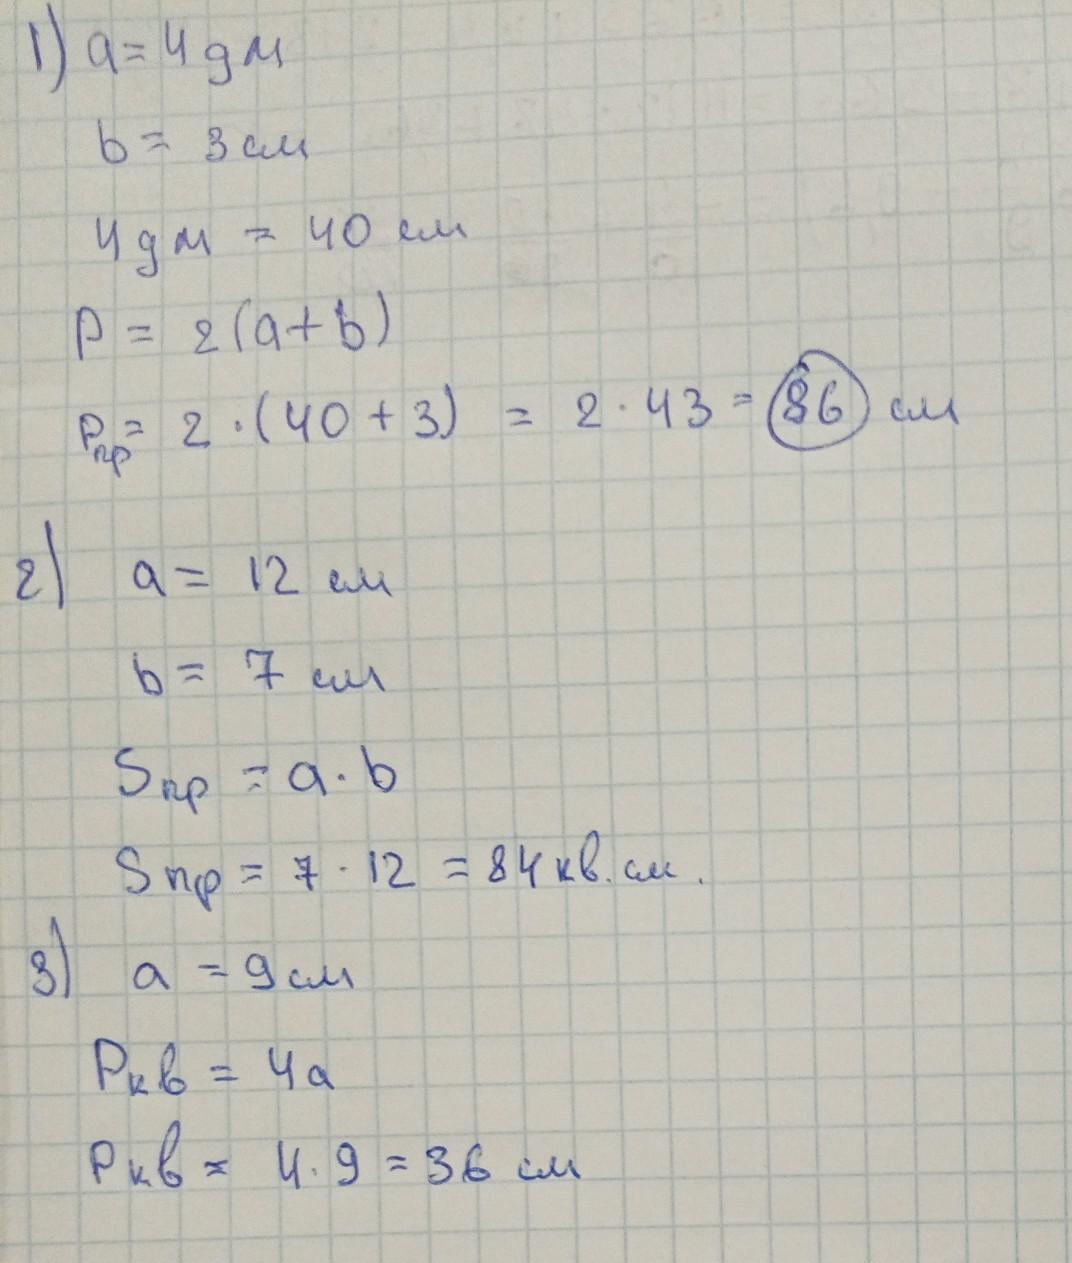 1) a = 4 дм
b = 3 см
4 дм = 40 см
P = 2(a + b)
Pпр = 2 · (40 + 3) = 2 · 43 = 86 см
2) a = 12 см
b = 7 см
Sпр = a · b
Sпр = 7 · 12 = 84 кв. см.
3) a = 9 см
Pкв = 4a
Pкв = 4 · 9 = 36 см